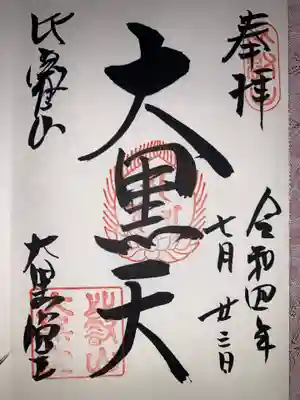 奉拝
令和四年
七月廿三日
大黒天
比叡山
大黒堂